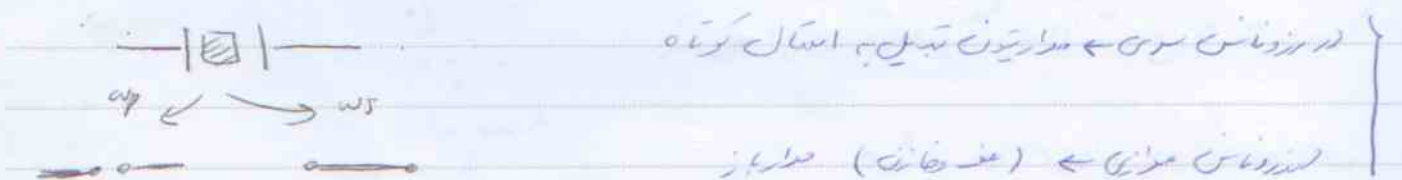 در رزونانس سری ← مدارتون تبدیل به اتصال کوتاه
ωp ωs
رزونانس موازی ← ( سلف و خازن ) مدار باز